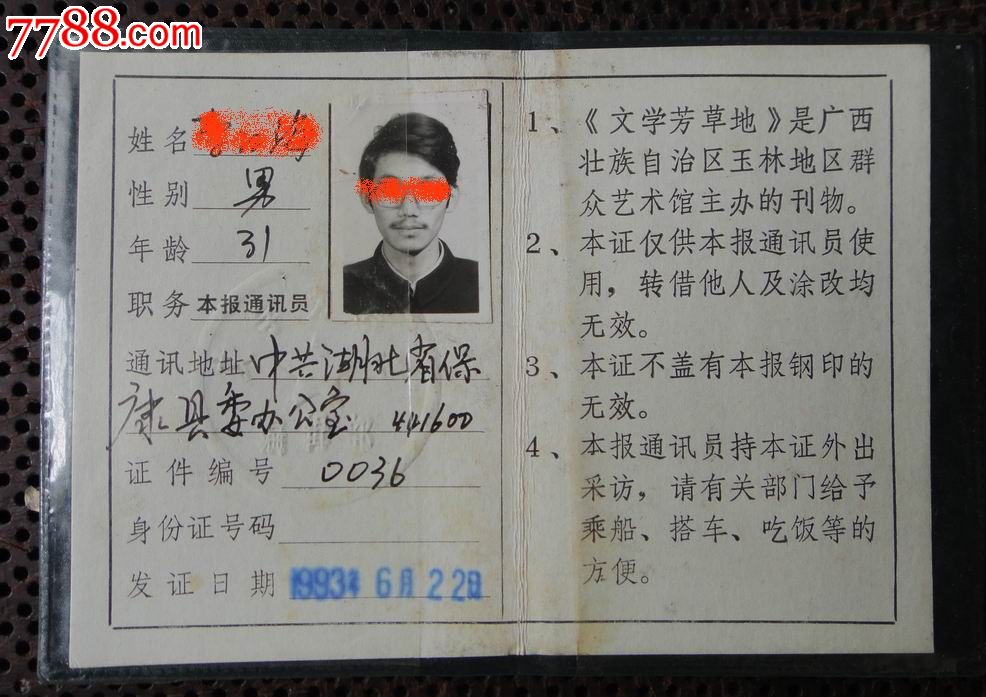 7788.com
姓名
性别 男
年龄 31
职务 本报通讯员
通讯地址 中共湖北省保
康县委办公室 441600
证件编号 0036
身份证号码
发证日期 1993年6月22日
1、《文学芳草地》是广西
壮族自治区玉林地区群
众艺术馆主办的刊物。
2、本证仅供本报通讯员使
用，转借他人及涂改均
无效。
3、本证不盖有本报钢印的
无效。
4、本报通讯员持本证外出
采访，请有关部门给予
乘船、搭车、吃饭等的
方便。